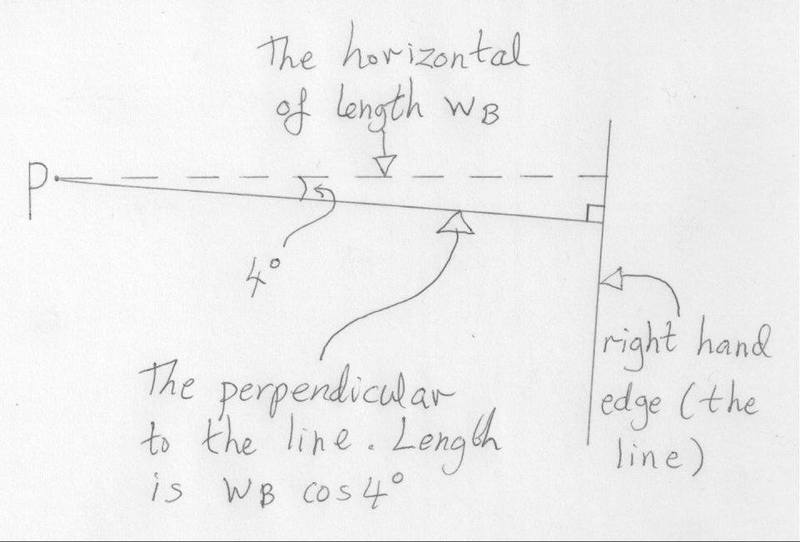 The horizontal
of length WB
P
4°
right hand
edge (the
line)
The perpendicular
to the line. Length
is WB cos4°